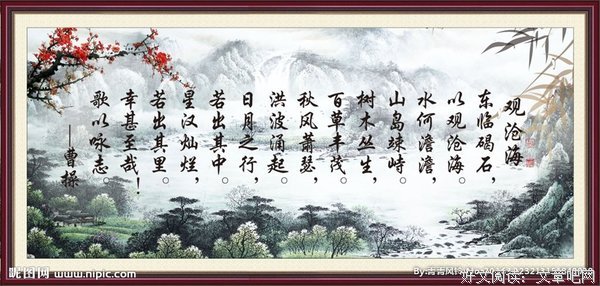 观沧海
东临碣石，
以观沧海。
水何澹澹，
山岛竦峙。
树木丛生，
百草丰茂。
秋风萧瑟，
洪波涌起。
日月之行，
若出其中。
星汉灿烂，
若出其里。
幸甚至哉！
歌以咏志。
——曹操
昵图网 www.nipic.com
好文阅读：文章吧网